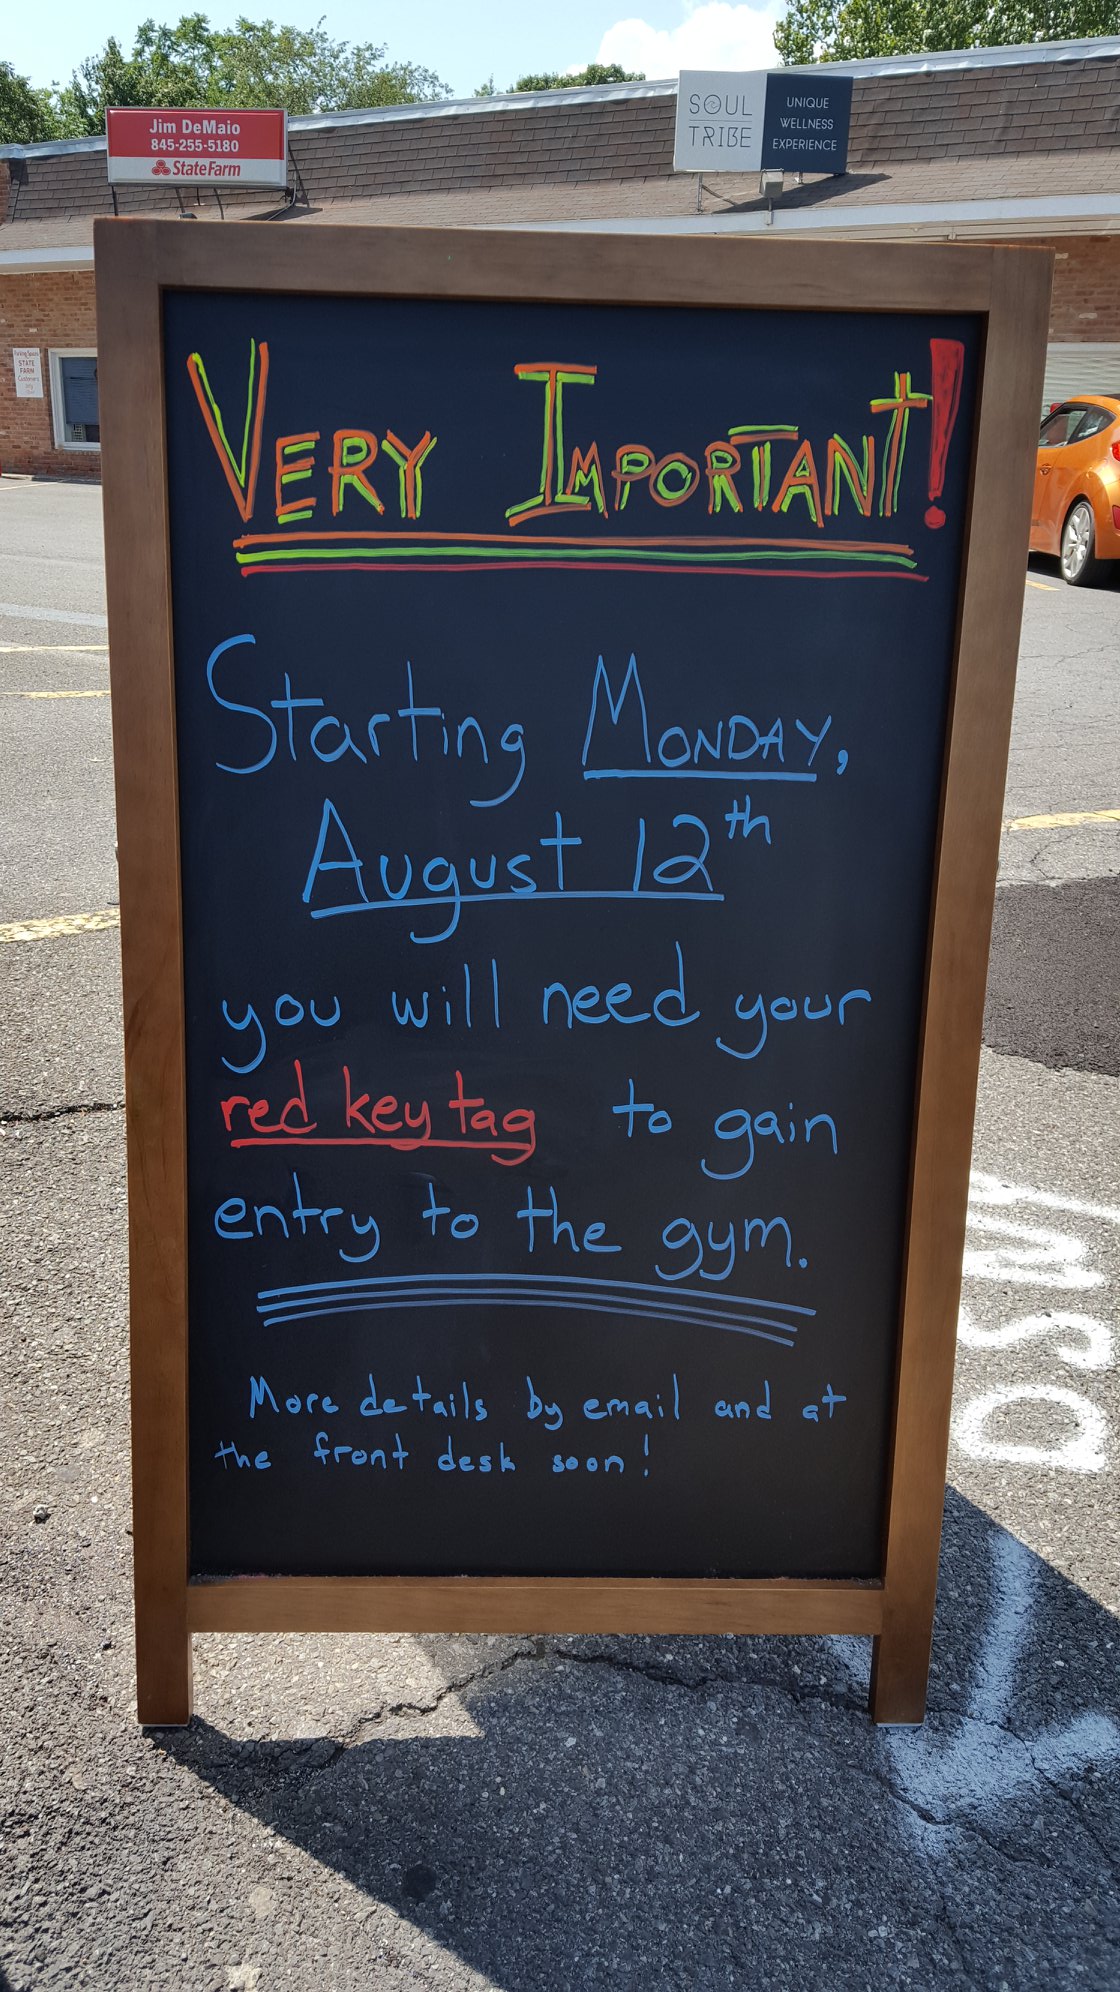 Jim DeMaio
845-255-5180
StateFarm
SOUL
TRIBE
UNIQUE
WELLNESS
EXPERIENCE
Parking Spaces
STATE
FARM
Customers
only
VERY IMPORTANT!
Starting MONDAY,
August 12th
you will need your
red key tag to gain
entry to the gym.
More details by email and at
the front desk soon!